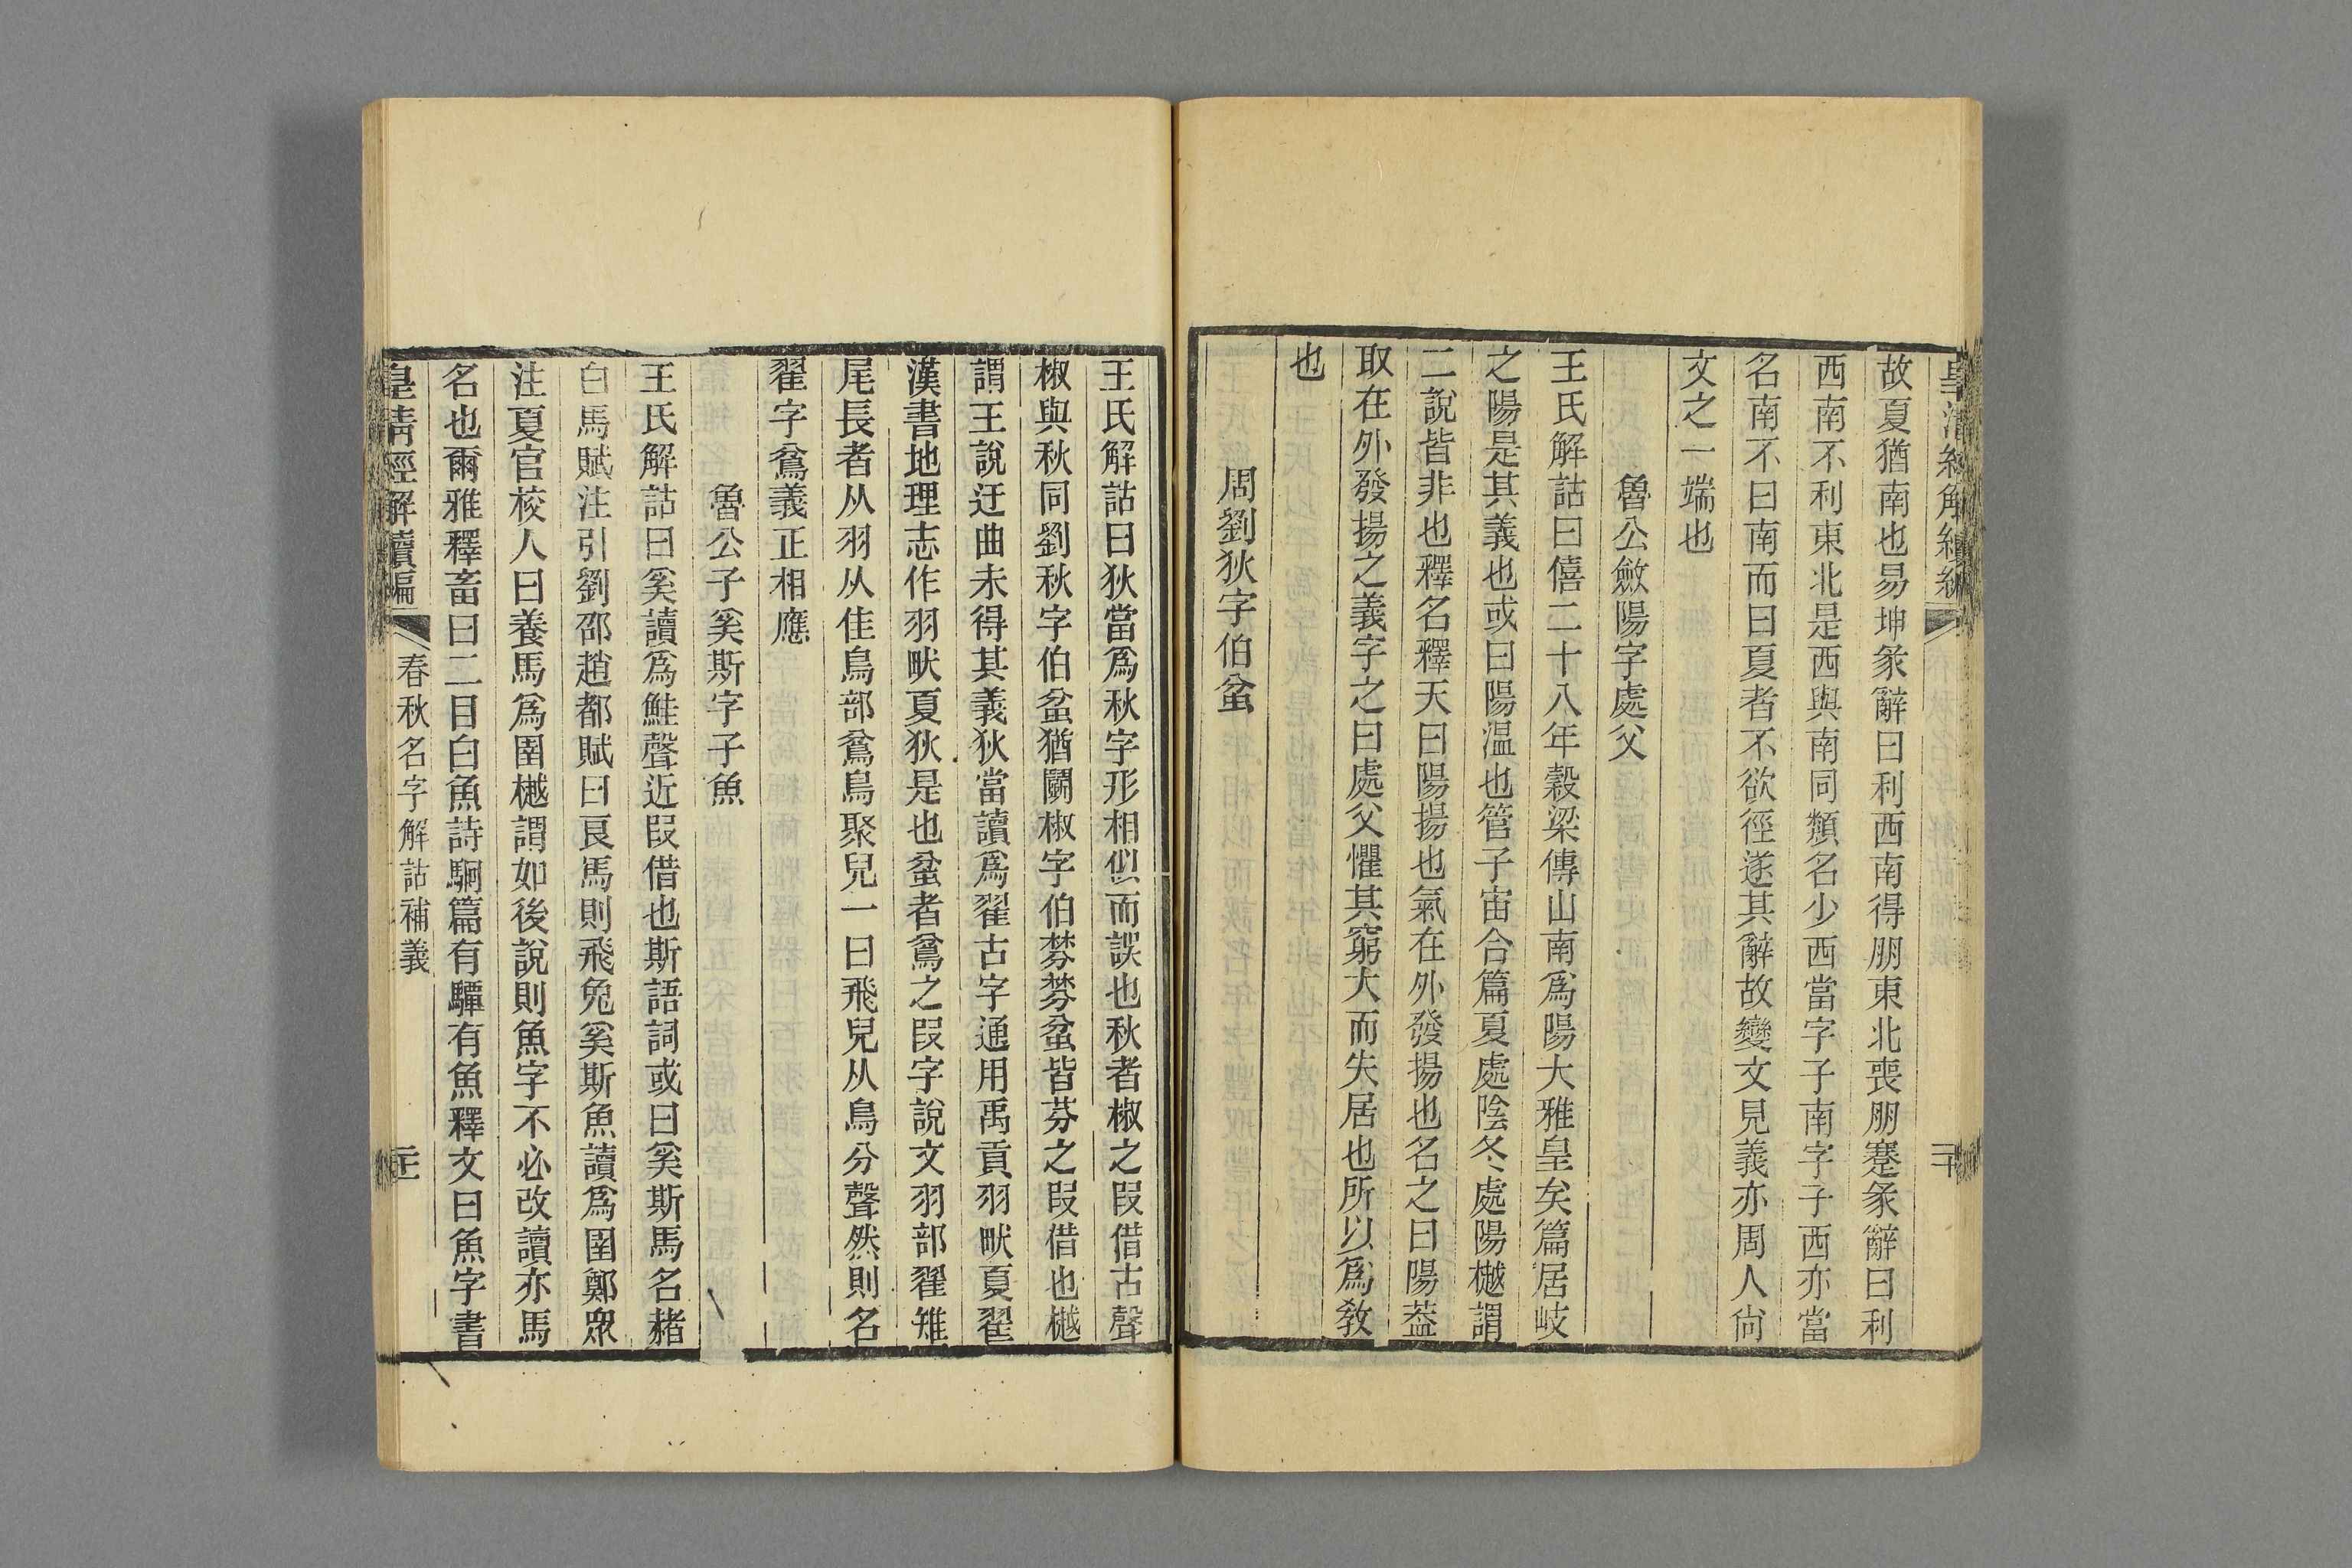 故夏猶南也易坤彖辭曰利西南得朋東北喪朋蹇彖辭曰利
西南不利東北是西與南同類名少西當字子南字子西亦當
名南不曰南而曰夏者不欲徑遂其辭故變文見義亦周人尙
文之一端也
魯公斂陽字處父
王氏解詁曰僖二十八年穀梁傳山南爲陽大雅皇矣篇居岐
之陽是其義也或曰陽温也管子宙合篇夏處陰冬處陽樾謂
二說皆非也釋名釋天曰陽揚也氣在外發揚也名之曰陽葢
取在外發揚之義字之曰處父懼其窮大而失居也所以爲敎
也
周劉狄字伯蚠
王氏解詁曰狄當爲秋字形相似而誤也秋者椒之叚借古聲
椒與秋同劉秋字伯蚠猶鬬椒字伯棼棼蚠皆芬之叚借也樾
謂王說迂曲未得其義狄當讀爲翟古字通用禹貢羽畎夏翟
漢書地理志作羽畎夏狄是也蚠者鳻之叚字說文羽部翟雉
尾長者从羽从隹鳥部鳻鳥聚皃一曰飛皃从鳥分聲然則名
翟字鳻義正相應
魯公子奚斯字子魚
王氏解詁曰奚讀爲鮭聲近叚借也斯語詞或曰奚斯馬名赭
白馬賦注引劉邵趙都賦曰良馬則飛兔奚斯魚讀爲圉鄭眾
注夏官校人曰養馬爲圉樾謂如後說則魚字不必改讀亦馬
名也爾雅釋畜曰二目白魚詩駉篇有驔有魚釋文曰魚字書
皇清經解續編
春秋名字解詁補義